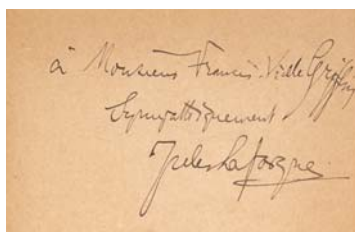 à Monsieur Francis Vielé Griffin
Sympathiquement
Jules Laforgue